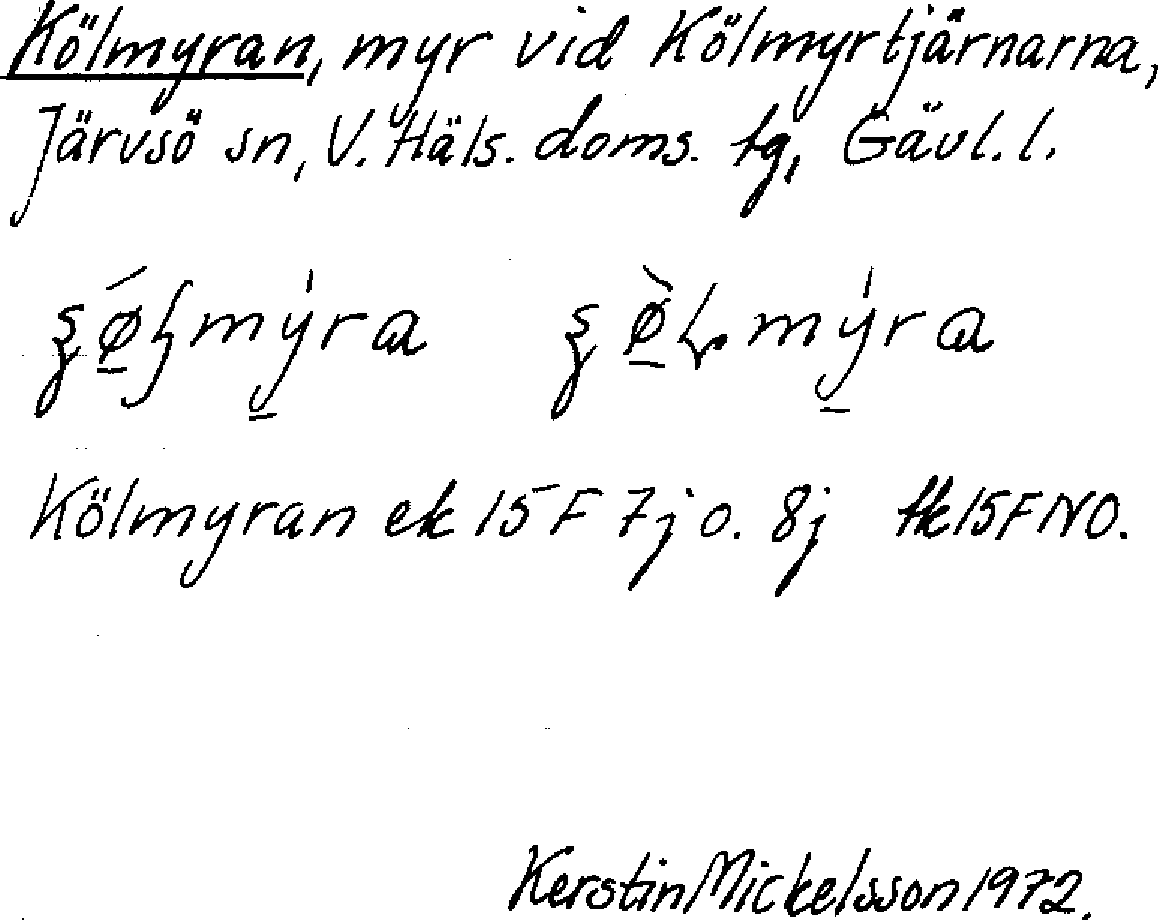 Kölmyran, myr vid Kölmyrtjärnarna,
Järvsö sn, V. Häls. doms. tg, Gävl. l.
Kölmyran ek 15 F 7j o. 8j tk 15F NO.
Kerstin Mickelsson 1972.